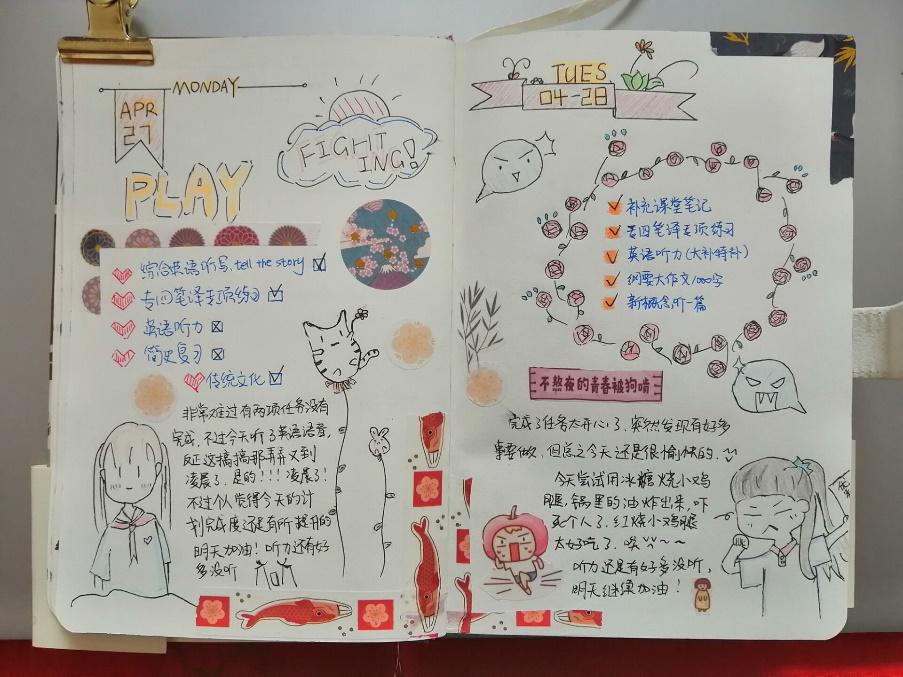 MONDAY
APR
27
FIGHT
ING!
PLAY
综合英语听写, tell the story
专四笔译专项练习
英语听力
简史复习
传统文化
非常难过有两项任务没有
完成,不过今天听了英语语音,
反正这搞搞那弄弄又到
凌晨了.是的!!!凌晨了!
不过个人觉得今天的计
划完成度还是有所提升的
明天加油!听力还有好
多没听
TUES
04-28
补充课堂笔记
专四笔译专项练习
英语听力(大补特补)
纲要大作文1000字
新概念听一篇
不熬夜的青春被狗啃
完成了任务太开心了.突然发现有好多
事要做.但总之今天还是很愉快的.
今天尝试用冰糖烧小鸡
腿,锅里的油炸出来,吓
死个人了.红烧小鸡腿
太好吃了.
听力还是有好多没听,
明天继续加油!